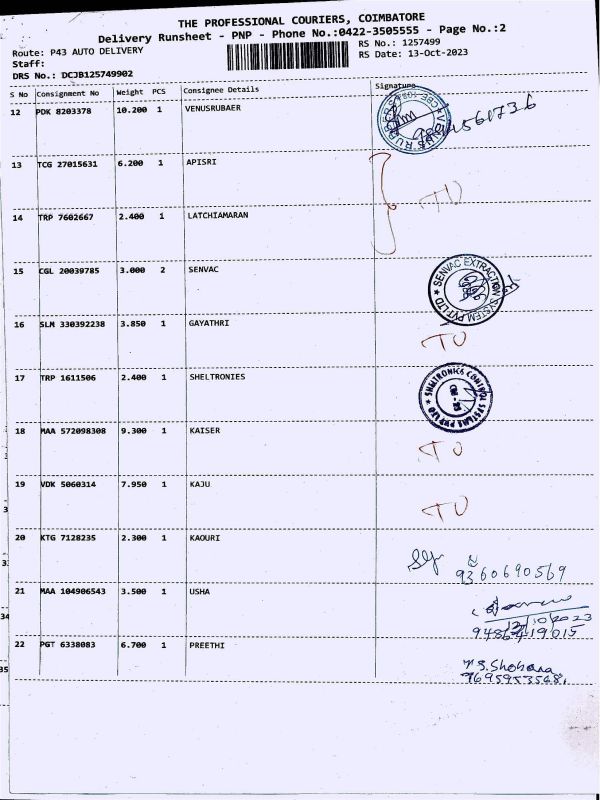 THE PROFESSIONAL COURIERS, COIMBATORE
Delivery Runsheet - PNP - Phone No.:0422-3505555 - Page No.:2
Route: P43 AUTO DELIVERY
RS No.: 1257499
Staff:
RS Date: 13-Oct-2023
DRS No.: DCJB125749902
S No Consignment No Weight PCS Consignee Details Signature
12 PDK 8203378 10.200 1 VENUSRUBAER
13 TCG 27015631 6.200 1 APISRI
TU
14 TRP 7602667 2.400 1 LATCHIAMARAN
15 CGL 20039785 3.000 2 SENVAC
SENVAC EXTRACTION SYSTEM PVT LTD
16 SLM 330392238 3.850 1 GAYATHRI
TU
17 TRP 1611506 2.400 1 SHELTRONIES
SHELTRONICS CONTROL SYSTEMS PVT LTD
18 MAA 572098308 9.300 1 KAISER
TU
19 VDK 5060314 7.950 1 KAJU
TU
20 KTG 7128235 2.300 1 KAOURI
9360690569
21 MAA 104906543 3.500 1 USHA
22 PGT 6338083 6.700 1 PREETHI
S.Shobana